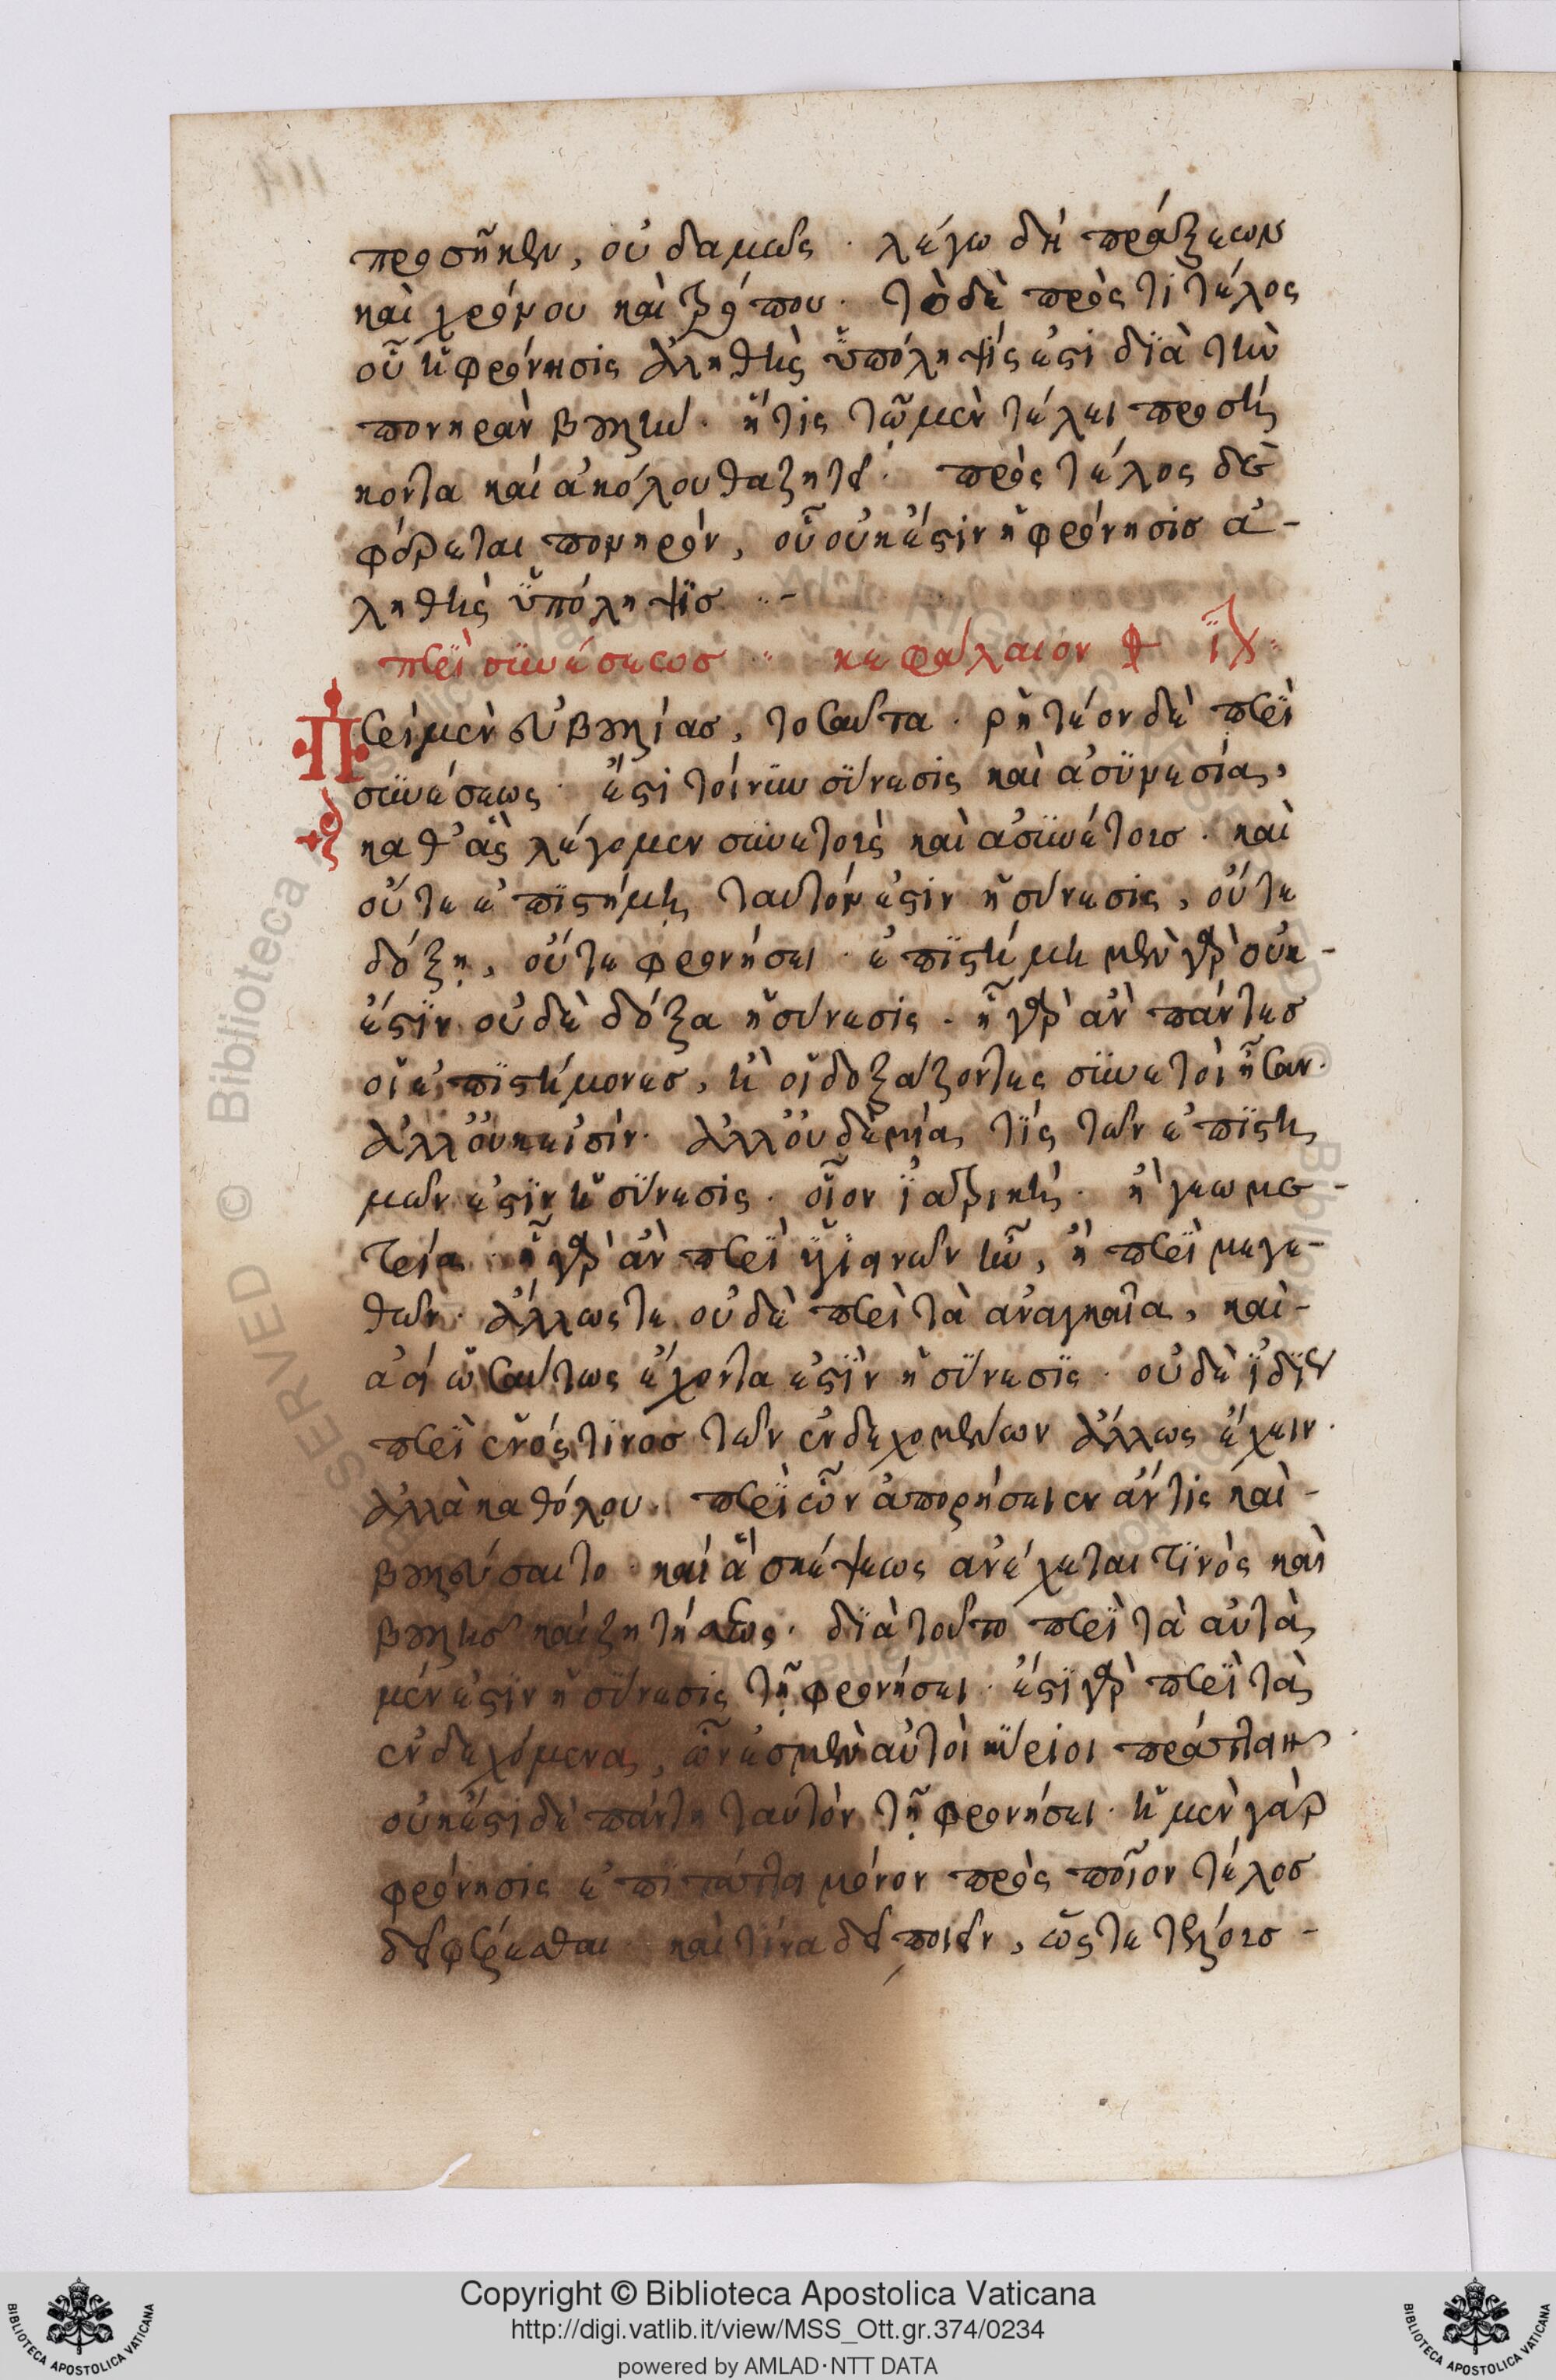 προσῆκεν, οὐδαμῶς · λέγω δὴ πράξεων
καὶ χρόνου καὶ τρόπου · τὸ δὲ πρός τι τέλος
οὗ ἡ φρόνησις ἀληθὴς ὑπόληψίς ἐστι διὰ τὴν
πονηρὰν βουλὴν · ἥτις τῶ μὲν τέλει προσή
κοντα καὶ ἀκόλουθα ζητεῖ · πρὸς τέλος δὲ
φέρεται πονηρόν, οὗ οὐκ ἔστιν ἡ φρόνησις ἀ-
ληθὴς ὑπόληψις ··-
περὶ συνέσεως ·· κεφάλαιον ιχ ··
Περὶ μὲν εὐβουλίας, τοσαῦτα · ῥητέον δὲ περὶ
συνέσεως · ἔστι τοίνυν σύνεσις καὶ ἀσυνεσία,
καθ' ἃς λέγομεν συνετοὺς καὶ ἀσυνέτους · καὶ
οὔτε ἐπιστήμη ταυτόν ἐστιν ἡ σύνεσις, οὔτε
δόξῃ, οὔτε φρονήσει · ἐπιστήμη μὲν γὰρ οὐκ-
ἔστιν οὐδὲ δόξα ἡ σύνεσις · ἦ γὰρ ἂν πάντες
οἱ ἐπιστήμονες, ἢ οἱ δοξάζοντες συνετοὶ ἦσαν ·
ἀλλ' οὐκ εἰσίν · ἀλλ' οὐδὲ μία τίς τῶν ἐπιστη
μῶν ἐστιν ἡ σύνεσις · οἷον ἰατρικὴ · ἢ γεωμε-
τρία · ἦ γὰρ ἂν περὶ ὑγιεινῶν ἦν, ἢ περὶ μεγε-
θῶν · ἄλλως τε οὐδὲ περὶ τὰ ἀναγκαῖα, καὶ-
ἀεὶ ὡσαύτως ἔχοντα ἐστὶν ἡ σύνεσις · οὐδὲ ἰδίως
περὶ ἑνός τινος τῶν ἐνδεχομένων ἄλλως ἔχειν ·
ἀλλὰ καθόλου · περὶ ὧν ἀπορήσειεν ἄν τις καὶ-
βουλεύσαιτο · καὶ ἃ σκέψεως ἀνέχεται τινὸς καὶ
βουλῆς καὶ ζητήσεως · διὰ τοῦτο περὶ τὰ αὐτὰ
μέν ἐστιν ἡ σύνεσις τῇ φρονήσει · ἔστι γὰρ περὶ τὰ
ἐνδεχόμενα, ὧν ἐσμὲν αὐτοὶ κύριοι πράττειν ·
οὐκ ἔστι δὲ πάντη ταυτὸν τῇ φρονήσει · ἡ μὲν γὰρ
φρόνησις ἐπιτάττει μόνον πρὸς ποῖον τέλος
δεῖ φέρεσθαι · καὶ τίνα δεῖ ποιεῖν, ὥστε